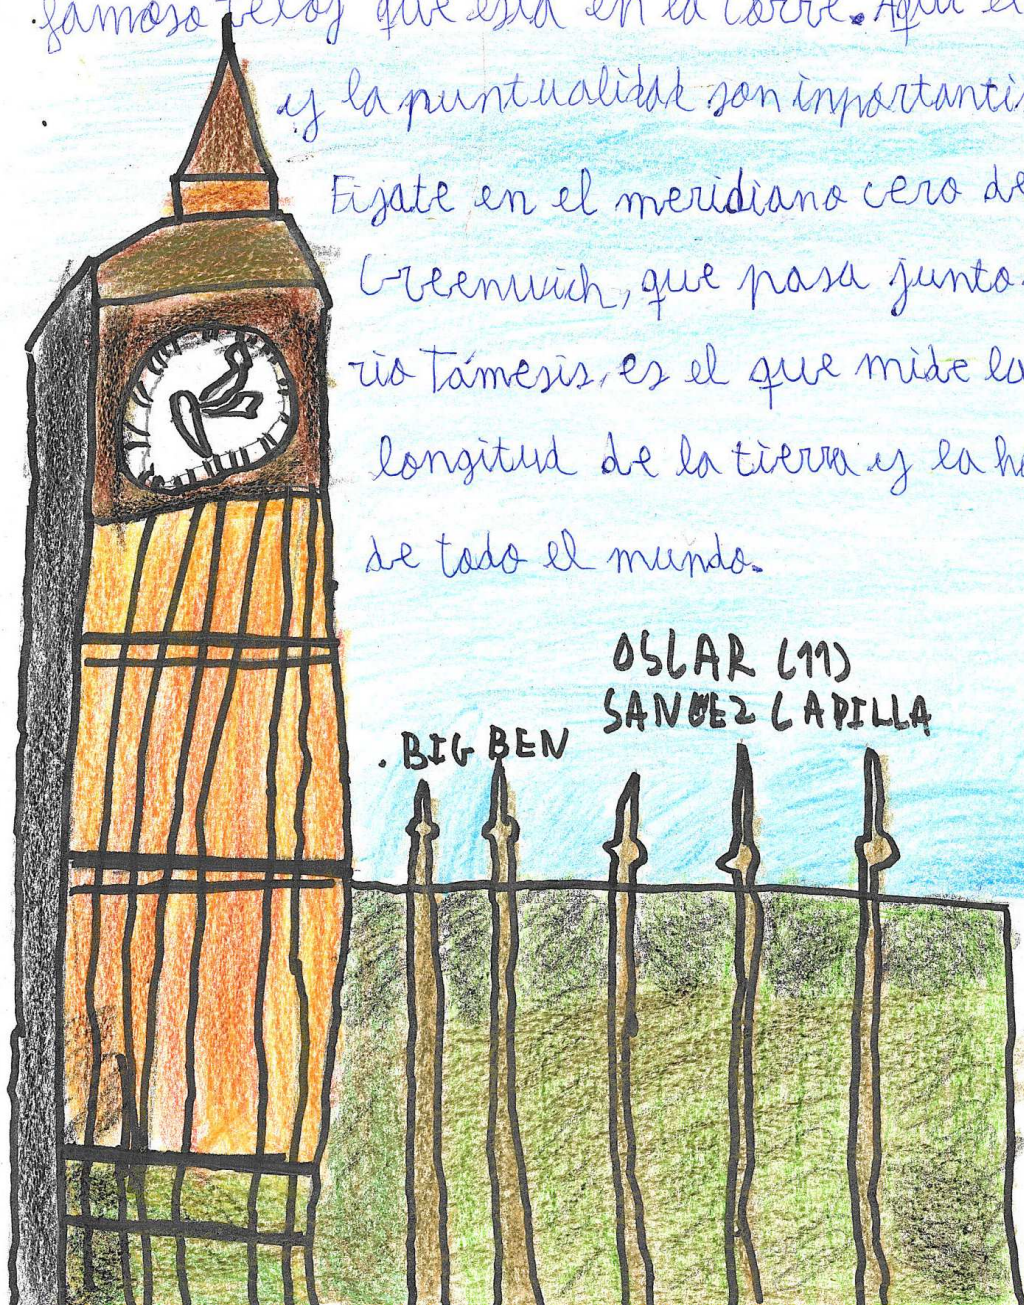 famoso reloj que está en la torre. Aquí el
y la puntualidad son inportanti
Fijate en el meridiano cero de
Greenwich, que pasa junto
río Támesis, es el que mide la
longitud de la tierra y la ho
de todo el mundo.
OSCAR (11)
SANCEZ CAPILLA
. BIG BEN